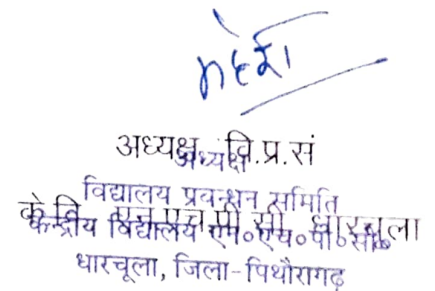 महेश
अध्यक्ष वि.प्र.सं
अध्यक्ष
विद्यालय प्रबन्धन समिति
के वि एन.एच.पी.सी धारचूला
केन्द्रीय विद्यालय एन०एच०पी०सी०
धारचूला, जिला-पिथौरागढ़